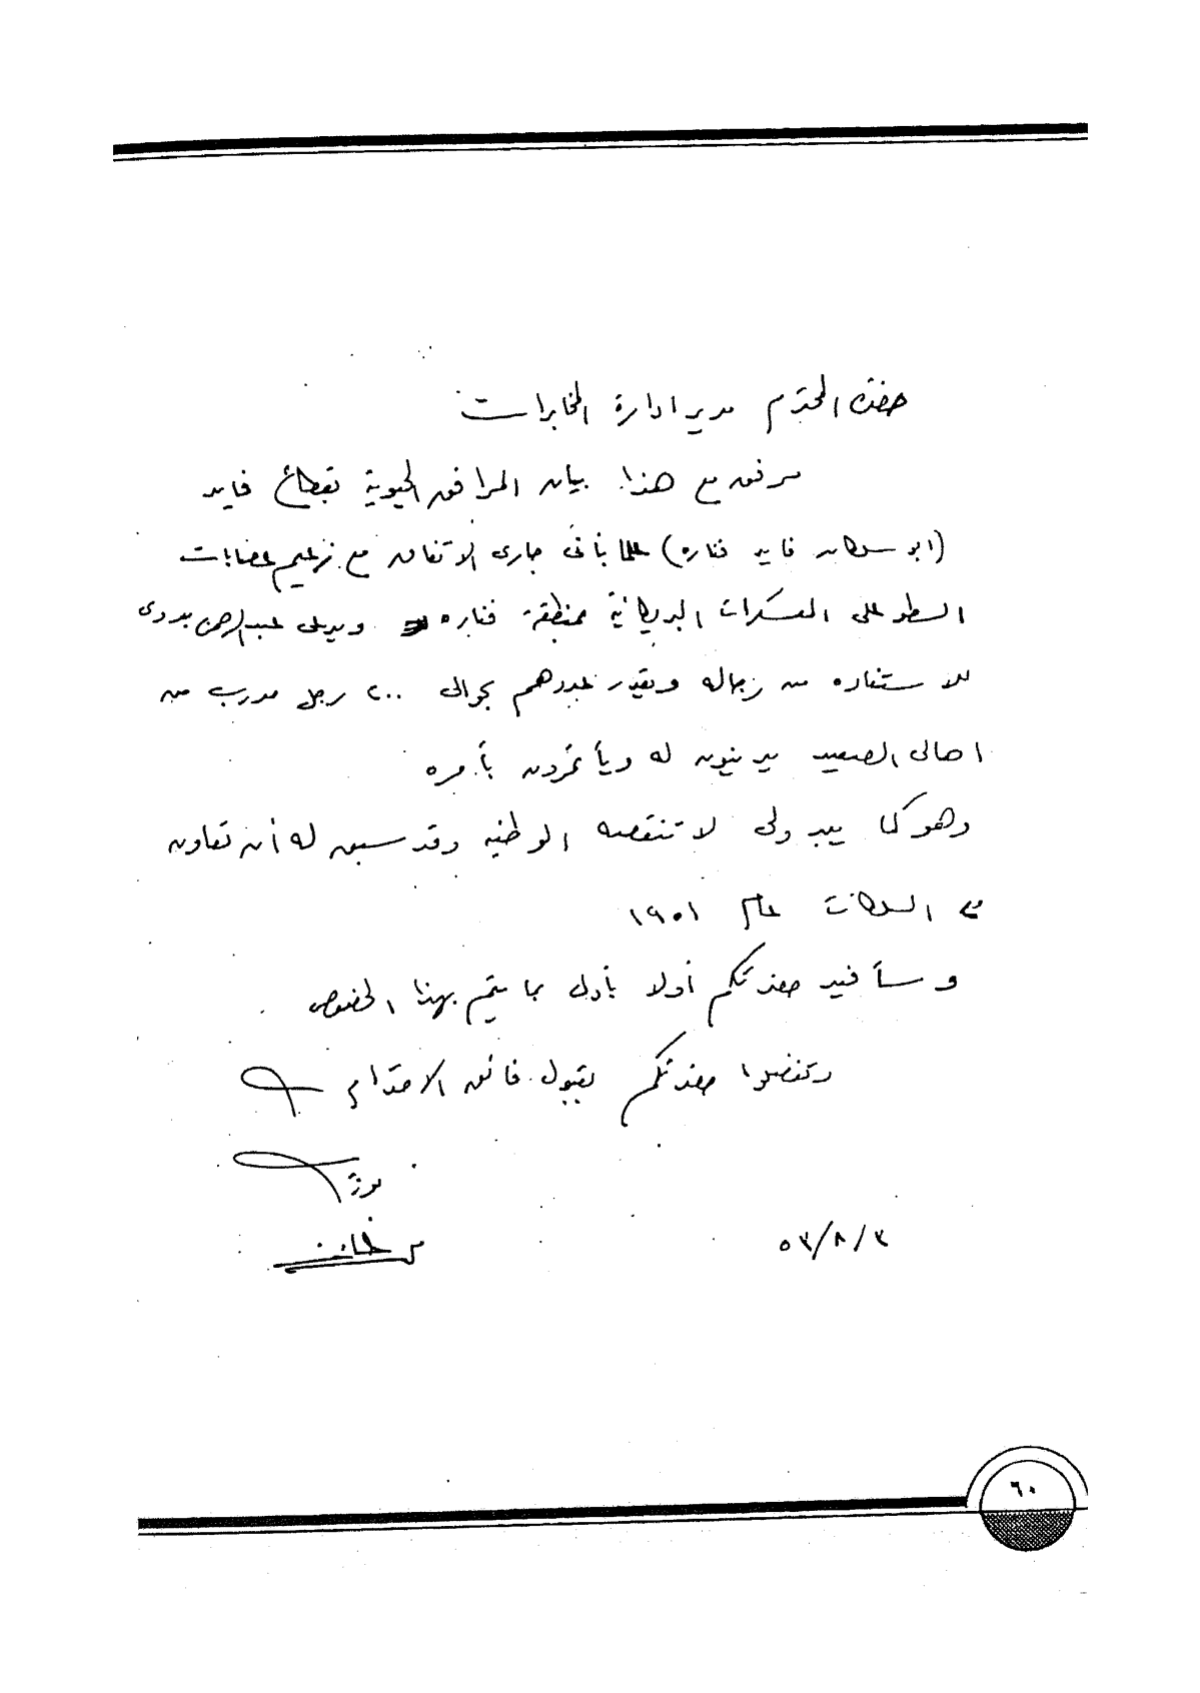 حضرة المحترم مدير ادارة المخابرات
مرفق مع هذا بيان المرافق الحيوية بقطاع فايد
(ابو سلطان فايد فناره) علما بأنى جارى الاتفاق مع زعيم عصابات
السطو على المعسكرات البريطانية بمنطقة فناره ويدعى عبد الرحمن بدوى
للاستفاده من رجاله ويقدر عددهم بحوالى ٢٠٠ رجل مدرب من
اهالى الصعيد يدينون له ويأتمرون بأمره
وهو كما يبدو لى لا تنقصه الوطنيه وقد سبق له أن تعاون
مع السلطات عام ١٩٥١
وسأفيد حضرتكم أولا بأول بما يتم بهذا الخصوص
وتفضلوا حضرتكم بقبول فائق الاحترام
٥٣/٨/٣
٦٠